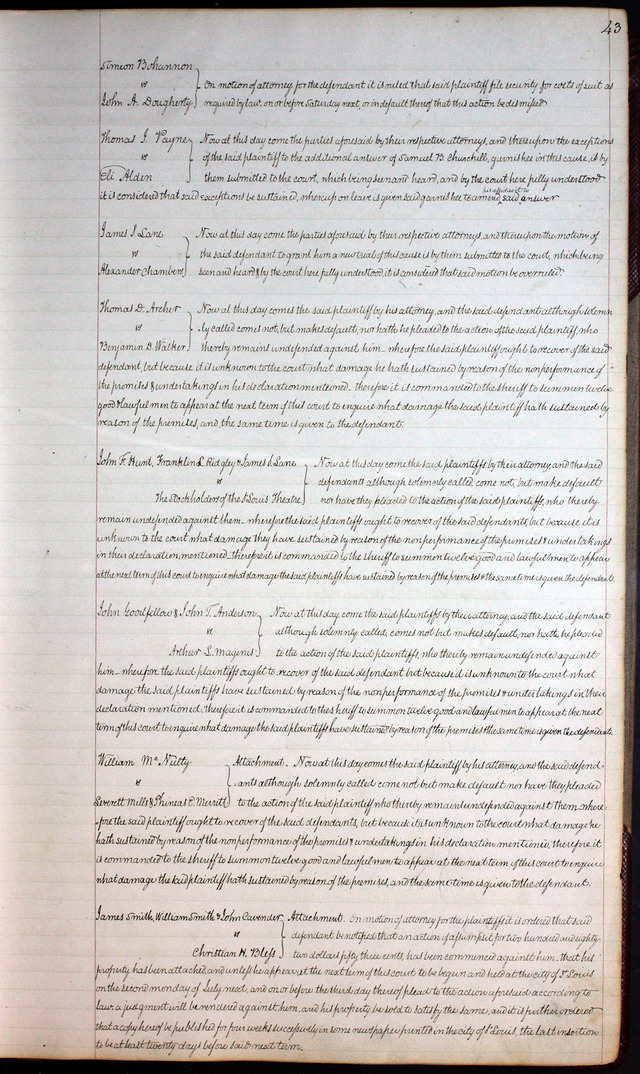 43
Simeon Bohannon
vs
John A. Dougherty
On motion of attorney for the defendant it is ruled that said plaintiff file security for costs of suit as
required by law on or before Saturday next, or in default thereof that this action be dismissed
Thomas J. Payne
vs
Eli Alden
Now at this day come the parties aforesaid by their respective attorneys, and thereupon the exceptions
of the said plaintiff to the additional answer of Samuel B. Churchill, garnishee in this cause, is by
them submitted to the court, which being seen and heard, and by the court here fully understood
it is considered that said exceptions be sustained, whereupon leave is given said garnishee to amend his affidavit to said answer
James S. Lane
vs
Alexander Chambers
Now at this day come the parties aforesaid by their respective attorneys, and thereupon the motion of
the said defendant to grant him a new trial of this cause is by them submitted to the court, which being
seen and heard & by the court here fully understood, it is considered that said motion be overruled.
Thomas D. Archer
vs
Benjamin D. Walker
Now at this day comes the said plaintiff by his attorney, and the said defendant although solemn
ly called comes not, but makes default, nor hath he pleaded to the action of the said plaintiff, who
thereby remains undefended against him - wherefore the said plaintiff ought to recover of the said
defendant, but because it is unknown to the court what damage he hath sustained by reason of the nonperformance of
the promises & undertakings in his declaration mentioned - therefore it is commanded to the sheriff to summon twelve
good & lawful men to appear at the next term of this court to enquire what damage the said plaintiff hath sustained by
reason of the premises, and the same time is given to the defendant.
John F. Hunt, Franklin L. Ridgley & James S. Lane
vs
The Stockholders of the St Louis Theatre
Now at this day come the said plaintiffs by their attorney and the said
defendants although solemnly called come not, but make default
nor have they pleaded to the action of the said plaintiffs, who thereby
remain undefended against them - wherefore the said plaintiffs ought to recover of the said defendants, but because it is
unknown to the court what damage they have sustained by reason of the nonperformance of the promises & undertakings
in their declaration mentioned - therefore it is commanded to the sheriff to summon twelve good and lawful men to appear
at the next term of this court to enquire what damage the said plaintiffs have sustained by reason of the premises & the same time is given the defendants.
John Goodfellow & John T. Anderson
vs
Arthur L. Magenis
Now at this day come the said plaintiffs by their attorney, and the said defendant
although solemnly called, comes not but makes default, nor hath he pleaded
to the action of the said plaintiffs, who thereby remain undefended against
him - wherefore the said plaintiffs ought to recover of the said defendant but because it is unknown to the court what
damage the said plaintiffs have sustained by reason of the nonperformance of the promises & undertakings in their
declaration mentioned; therefore it is commanded to the sheriff to summon twelve good and lawful men to appear at the next
term of this court to enquire what damage the said plaintiffs have sustained by reason of the premises & the same time is given the defendants
William McNulty
vs
Leverett Mills & Phineas C. Merritt
Attachment. Now at this day comes the said plaintiff by his attorney, and the said defend-
ants although solemnly called come not but make default nor have they pleaded
to the action of the said plaintiff who thereby remains undefended against them - where-
fore the said plaintiff ought to recover of the said defendants, but because it is unknown to the court what damage he
hath sustained by reason of the nonperformance of the promises & undertakings in his declaration mentioned, therefore it
is commanded to the sheriff to summon twelve good and lawful men to appear at the next term of this court to enquire
what damage the said plaintiff hath sustained by reason of the premises, and the same time is given to the defendant.
James Smith, William Smith & John Cavender
vs
Christian H. Bless
Attachment. On motion of attorney for the plaintiffs it is ordered that said
defendant be notified that an action of assumpsit for two hundred and eighty-
two dollars fifty three cents, has been commenced against him - that his
property has been attached, and unless he appear at the next term of this court to be begun and held at the city of St Louis
on the second monday of July next, and on or before the third day thereof plead to the action aforesaid according to
law a judgment will be rendered against him, and his property be sold to satisfy the same, and it is further ordered
that a copy hereof be published for four weeks successively in some newspaper printed in the city of St Louis, the last insertion
to be at least twenty days before said next term.